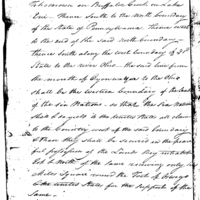 Tehoseroron or Buffaloe Creek on Lake
Erie - Thence South to the North boundary
of the State of Pennsylvania Thence west
to the end of the said north boundary -
Thence South along the west boundary of Sd
State to the river Ohio. the said line from
the mouth of to the Ohio
shall be the western boundary of the lands
of the six Nations. so that the Six Nations
shall & do yield to the United States all claims
to the Country west of the said boundary
& then they shall be secured in the peace-
ful possession of the Lands they inhabit
East & North of the same reserving only six
Miles Square round the Fort of Oswego
to the United States for the support of the
Same -